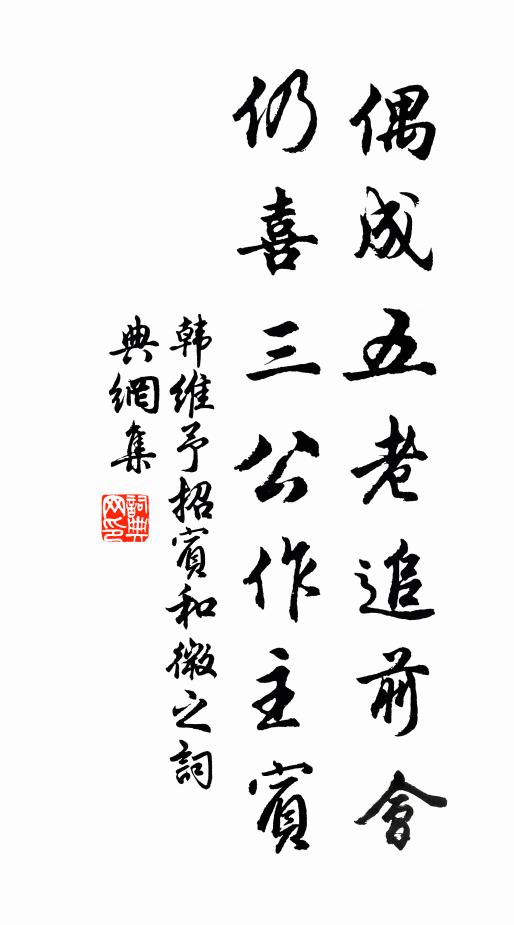 偶成五老追前會
仍喜三公作主賓
韩維予招賓和微之詞
典網集
詞典
网印